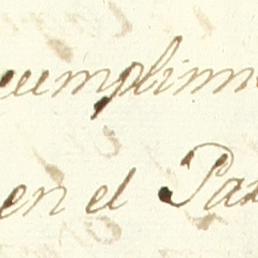 cumplimi
en el Pa